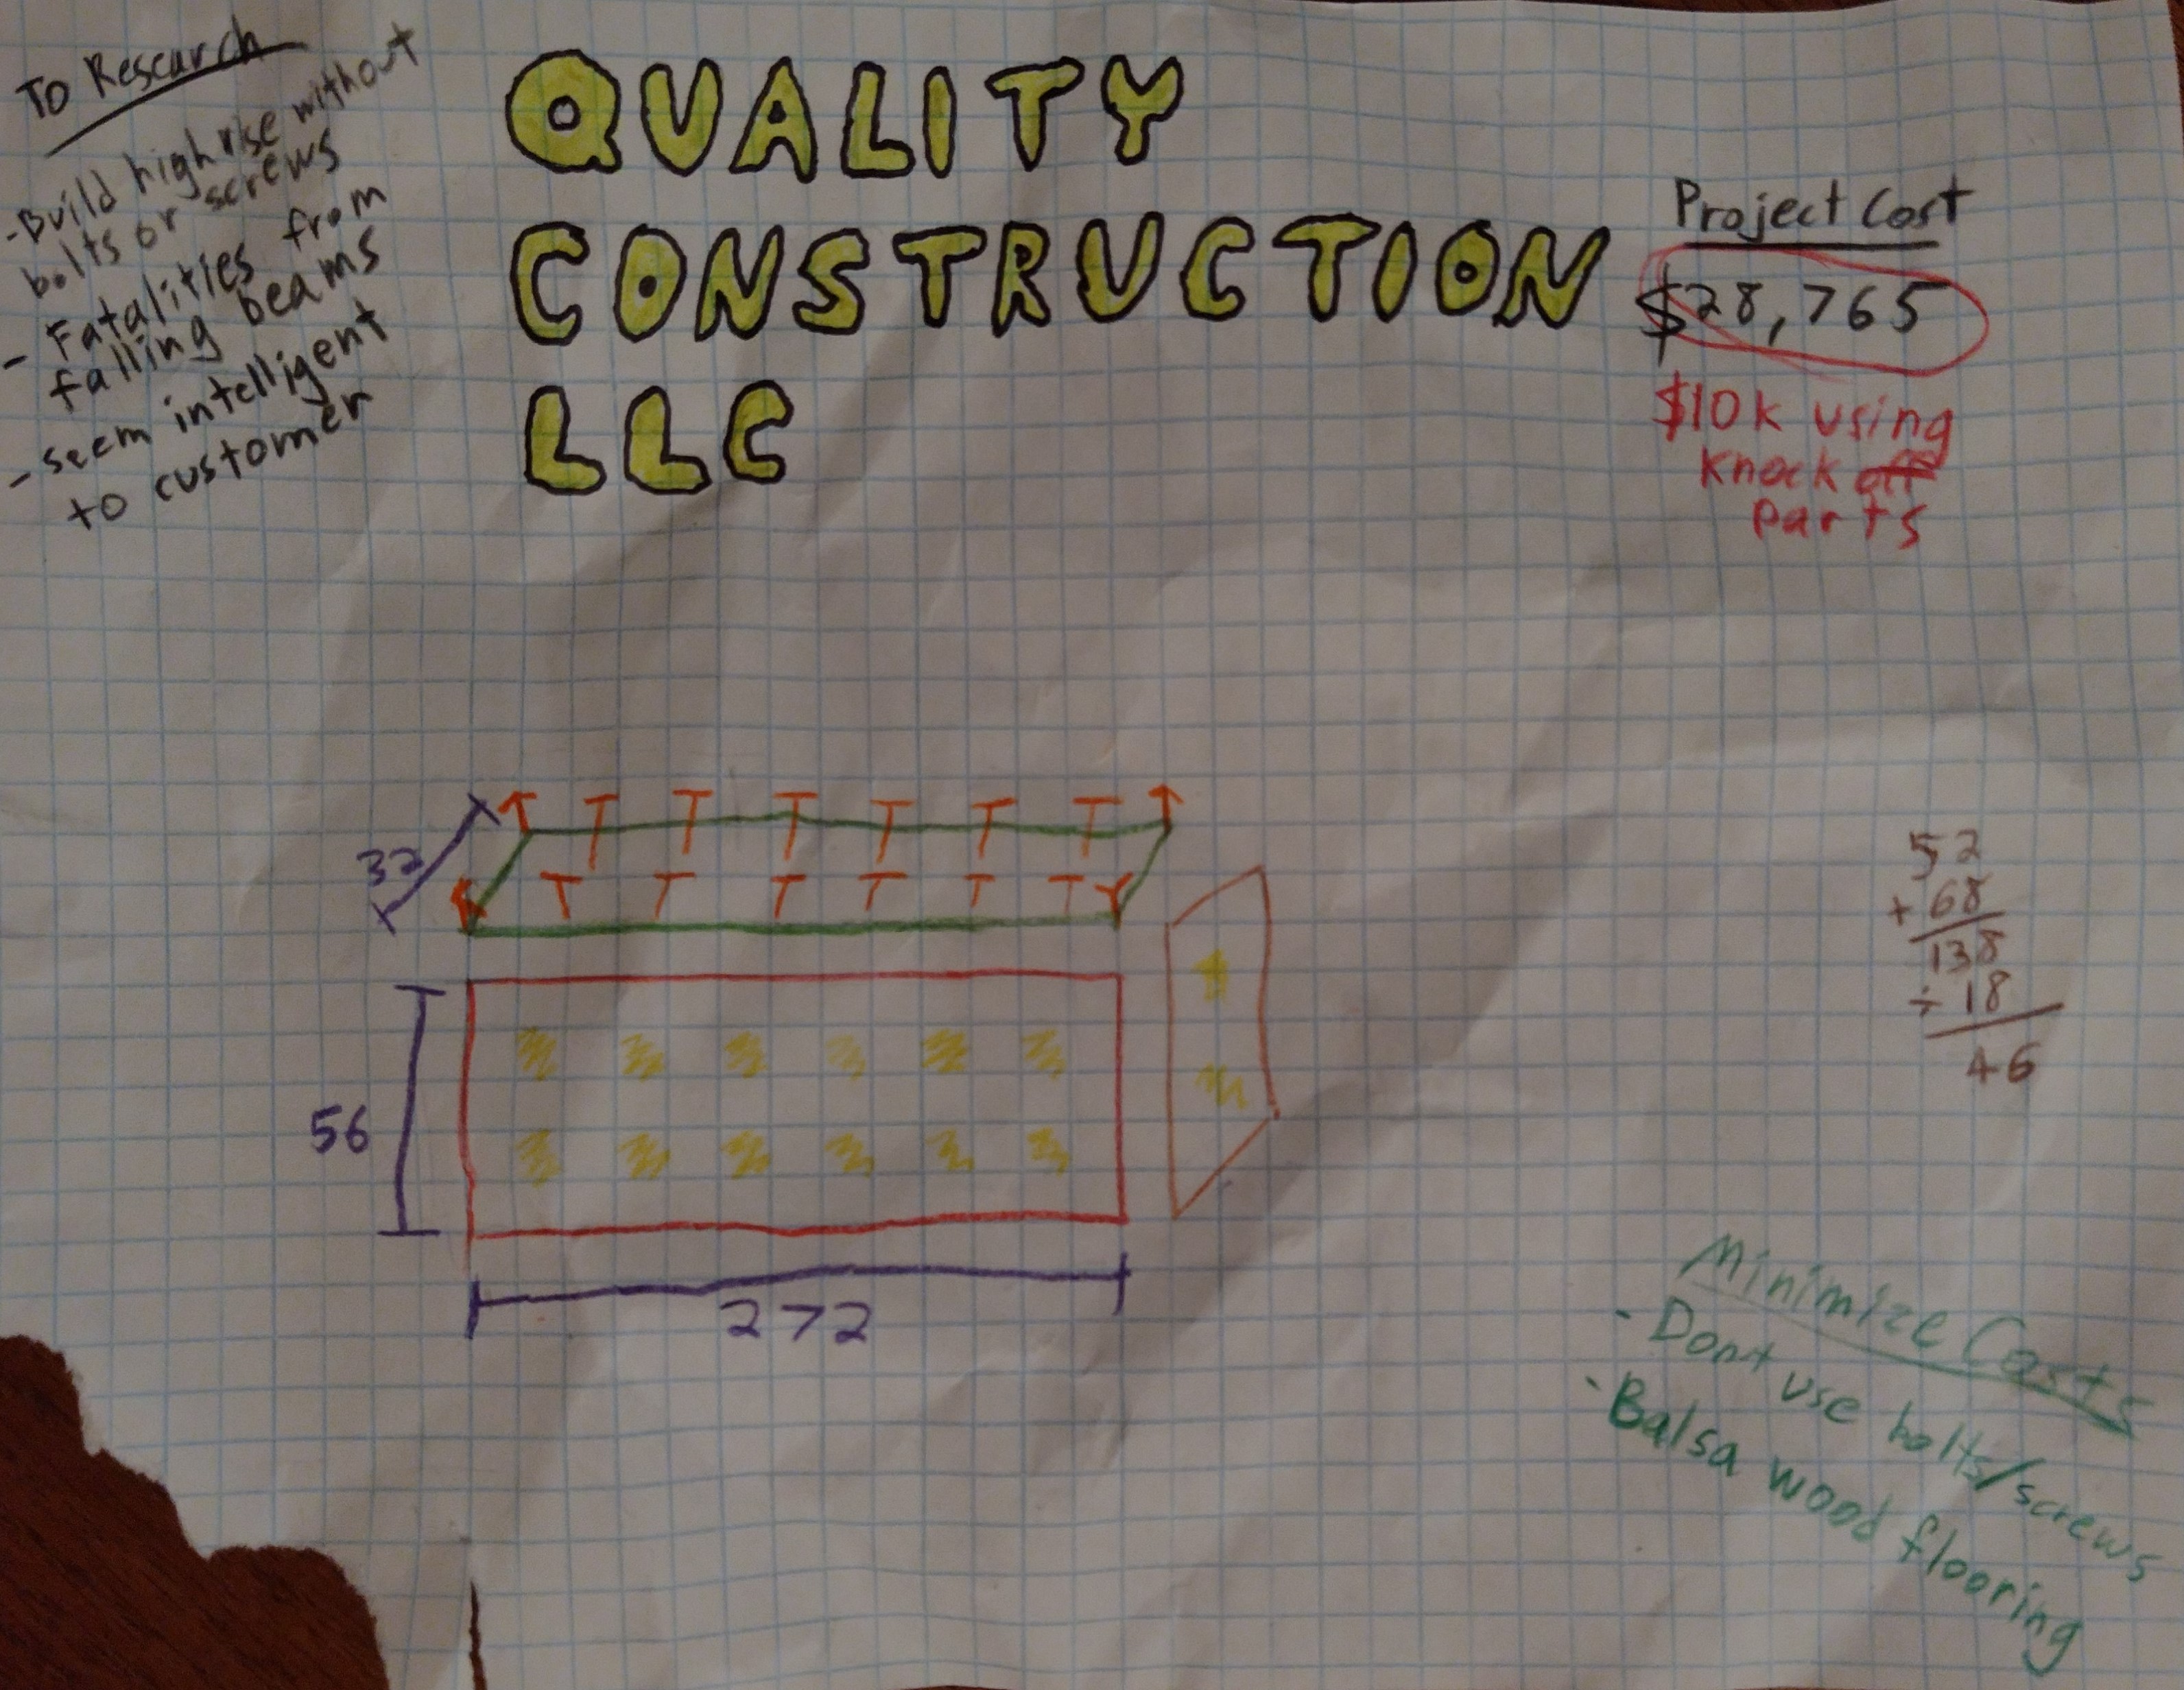 To Research
-Build high rise without
bolts or screws
- Fatalities from
falling beams
-seem intelligent
to customer
QUALITY
CONSTRUCTION
LLC
Project Cost
$28,765
$10k using
knock off
parts
32
56
272
52
+ 68
138
÷ 18
46
Minimize Costs
- Dont use bolts/screws
- Balsa wood flooring